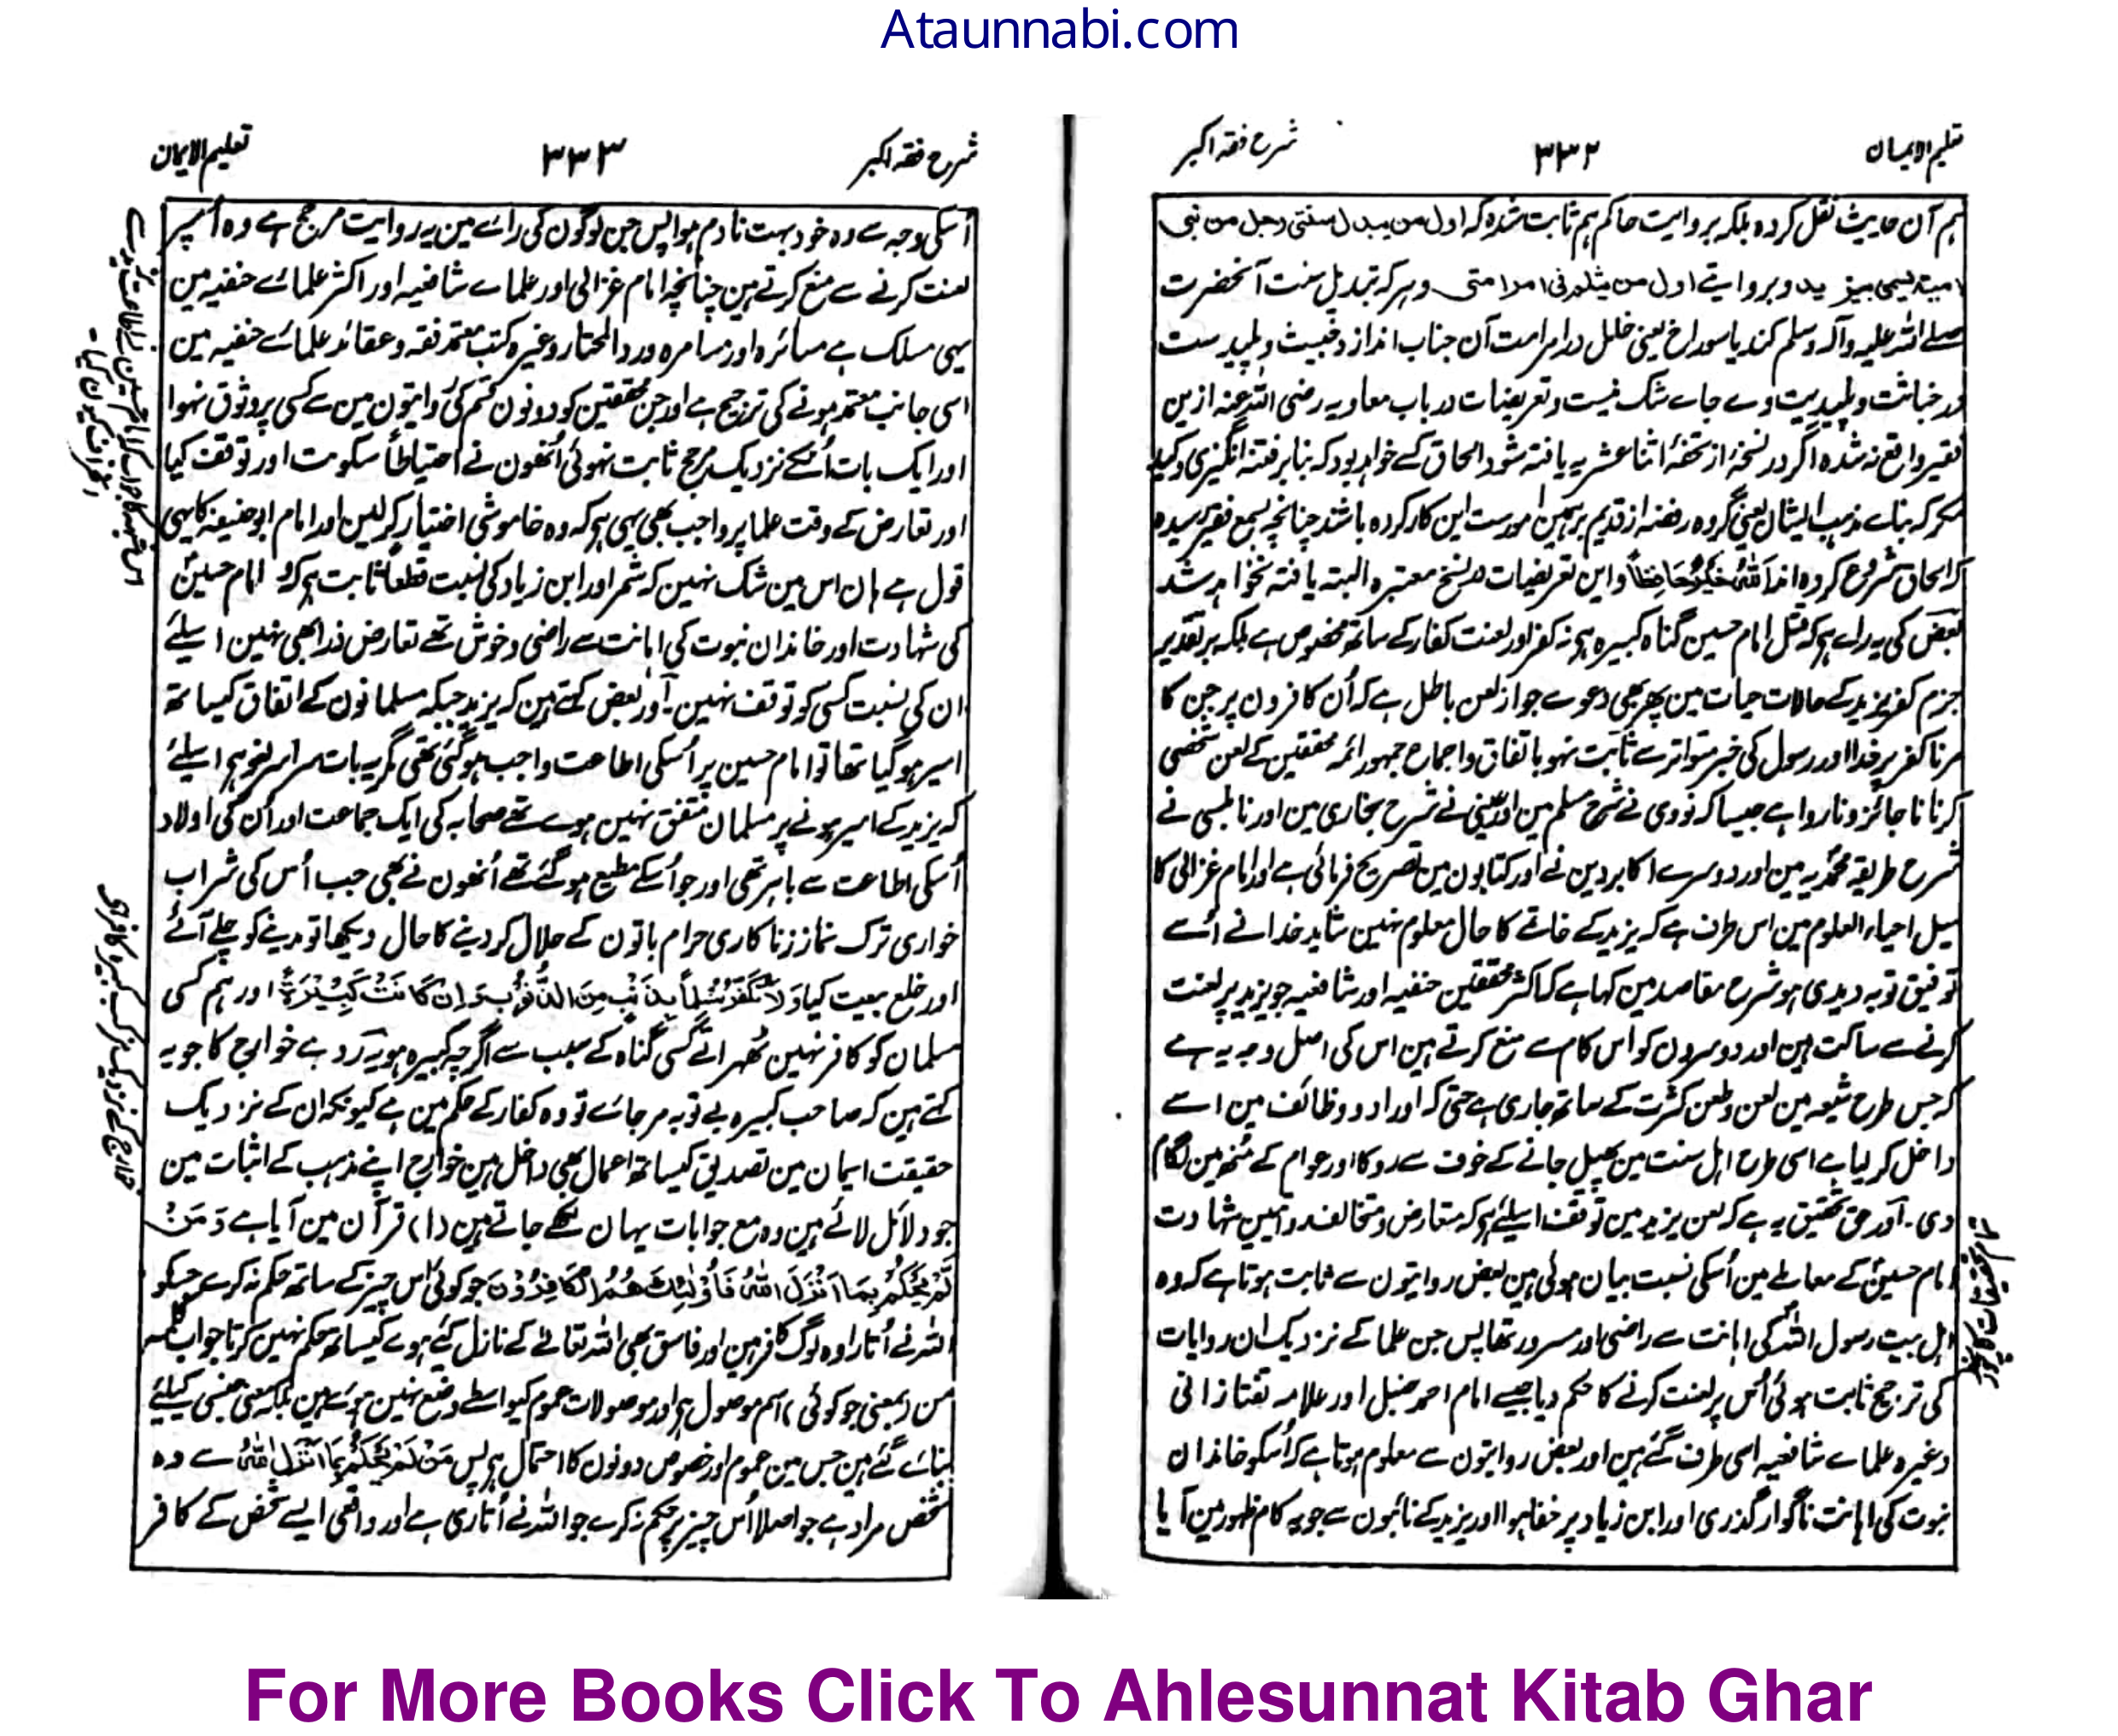 Ataunnabi.com
تعلیم الایمان ۳۳۲ شرح فقہ اکبر
ہم آن حدیث نقل کردہ بلکہ بروایت حاکم ہم ثابت شدہ کہ اول من یبدل سنتی رجل من بنی
امیة یسمی بیزید وبروایتے اول من یثلم فی امر امتی وہرکہ تبدیل سنت آنحضرت
صلے اللہ علیہ وآلہ وسلم کند یا سوراخ یعنی خلل در امر امت آن جناب اندازد خبیث و پلید ست
در خباثت و پلیدیت وے جاے شک نیست و تعریضات در باب معاویہ رضی اللہ عنہ ازین
فقیر واقع نہ شدہ اگر در نسخۂ از تحفۂ اثنا عشریہ یافتہ شود الحاق کسے خواہد بود کہ بنا بر فتنہ انگیزی و کید
مکر کہ بناے مذہب ایشان یعنی گروہ رفضہ از قدیم بر ہمین امور ست این کار کردہ باشد چنانچہ بسمع فقیر رسیدہ
کہ الحاق شروع کردہ اند اَللّٰہُ خَیْرٌ حَافِظًا و این تعریضات در نسخ معتبرہ البتہ یافتہ نخواہد شد
بعض کی یہ راے ہے کہ قتل امام حسین گناہ کبیرہ ہے نہ کفر اور لعنت کفار کے ساتھ مخصوص ہے بلکہ بر تقدیر
جزم کفر یزید کے حالات حیات مین پھر بھی دعوے جواز لعن باطل ہے کہ اُن کافرون پر جن کا
مرنا کفر پر خدا اور رسول کی خبر متواتر سے ثابت نہو باتفاق و اجماع جمہور ائمہ محققین کے لعن شخصی
کرنا نا جائز و ناروا ہے جیسا کہ نووی نے شرح مسلم مین اور عینی نے شرح بخاری مین اور نابلسی نے
شرح طریقہ محمدیہ مین اور دوسرے اکابر دین نے اور کتابون مین تصریح فرمائی ہے اور امام غزالی کا
میل احیاء العلوم مین اس طرف ہے کہ یزید کے خاتمے کا حال معلوم نہین شاید خدا نے اُسے
توفیق توبہ دیدی ہو شرح مقاصد مین کہا ہے کہ اکثر محققین حنفیہ اور شافعیہ جو یزید پر لعنت
کرنے سے ساکت ہین اور دوسرون کو اس کام سے منع کرتے ہین اس کی اصل وجہ یہ ہے
کہ جس طرح شیعہ مین لعن و طعن کثرت کے ساتھ جاری ہے حتی کہ اوراد و وظائف مین اسے
داخل کر لیا ہے اسی طرح اہل سنت مین پھیل جانے کے خوف سے روکا اور عوام کے منھ مین لگام
دی۔ آور حق تحقیق یہ ہے کہ لعن یزید مین توقف اسلئے ہے کہ متعارض و متخالف روایتین شہادت
امام حسینؓ کے معاملے مین اُسکی نسبت بیان ہوئی ہین بعض روایتون سے ثابت ہوتا ہے کہ وہ
اہل بیت رسول اللہ کی اہانت سے راضی اور مسرور تھا پس جن علما کے نزدیک ان روایات
کی ترجیح ثابت ہوئی اُس پر لعنت کرنے کا حکم دیا جیسے امام احمد حنبل اور علامہ تفتازانی
وغیرہ علماے شافعیہ اسی طرف گئے ہین اور بعض روایتون سے معلوم ہوتا ہے کہ اُسکو خاندان
نبوت کی اہانت ناگوار گذری اور ابن زیاد پر خفا ہوا اور یزید کے نائبون سے جو یہ کام ظہور مین آیا
شرح فقہ اکبر ۳۳۳ تعلیم الایمان
اُسکی وجہ سے وہ خود بہت نادم ہوا پس جن لوگون کی راے مین یہ روایت مرجح ہے وہ اُسپر
لعنت کرنے سے منع کرتے ہین چنانچہ امام غزالی اور علماے شافعیہ اور اکثر علمائے حنفیہ مین
یہی مسلک ہے مسائرہ اور مسامرہ ورد المحتار وغیرہ کتب معتمد فقہ و عقائد علمائے حنفیہ مین
اسی جانب معتمد ہونے کی ترجیح ہے اور جن محققین کو دونون قسم کی روایتون مین سے کسی پر وثوق نہوا
اور ایک بات اُنکے نزدیک مرجح ثابت نہوئی اُنھون نے احتیاطاً سکوت اور توقف کیا
اور تعارض کے وقت علما پر واجب بھی یہی ہے کہ وہ خاموشی اختیار کرلین اور امام ابو حنیفہ کا یہی
قول ہے ہان اس مین شک نہین کہ شمر اور ابن زیاد کی نسبت قطعاً ثابت ہے کہ وہ امام حسینؓ
کی شہادت اور خاندان نبوت کی اہانت سے راضی و خوش تھے تعارض ذرا بھی نہین اسلئے
ان کی نسبت کسی کو توقف نہین۔ آور بعض کہتے ہین کہ یزید جبکہ مسلمانون کے اتفاق کیساتھ
امیر ہو گیا تھا تو امام حسین پر اُسکی اطاعت واجب ہو گئی تھی مگر یہ بات سراسر لغو ہے اسلئے
کہ یزید کے امیر ہونے پر مسلمان متفق نہین ہوے تھے صحابہ کی ایک جماعت اور اُن کی اولاد
اُسکی اطاعت سے باہر تھی اور جو اُسکے مطیع ہو گئے تھے اُنھون نے بھی جب اُس کی شراب
خواری ترک نماز زناکاری حرام باتون کے حلال کر دینے کا حال دیکھا تو مدینے کو چلے آئے
اور خلع بیعت کیا وَلَا نُکَفِّرُ مُسْلِمًا بِذَنْبٍ مِنَ الذُّنُوْبِ وَاِنْ کَانَتْ کَبِیْرَۃً اور ہم کسی
مسلمان کو کافر نہین ٹھہراتے کسی گناہ کے سبب سے اگرچہ کبیرہ ہو یہ رد ہے خوارج کا جو یہ
کہتے ہین کہ صاحب کبیرہ بے توبہ مر جائے تو وہ کفار کے حکم مین ہے کیونکہ ان کے نزدیک
حقیقت ایمان مین تصدیق کیساتھ اعمال بھی داخل ہین خوارج اپنے مذہب کے اثبات مین
جو دلائل لائے ہین وہ مع جوابات یہان لکھے جاتے ہین (۱) قرآن مین آیا ہے وَمَنْ
لَّمْ یَحْکُمْ بِمَا اَنْزَلَ اللّٰہُ فَاُولٰئِکَ ھُمُ الْکَافِرُوْنَ جو کوئی اُس چیز کے ساتھ حکم نہ کرے جسکو
اللہ نے اُتارا وہ لوگ کافر ہین اور فاسق بھی اللہ تعالے کے نازل کئے ہوے کیساتھ حکم نہین کرتا جواب
من (بمعنی جو کوئی) اسم موصول ہے اور موصولات عموم کیواسطے وضع نہین ہوئے ہین بلکہ معنی جنسی کیلئے
بنائے گئے ہین جس مین عموم اور خصوص دونون کا احتمال ہے پس مَنْ لَّمْ یَحْکُمْ بِمَا اَنْزَلَ اللّٰہُ سے وہ
شخص مراد ہے جو اصلا اُس چیز پر حکم نکرے جو اللہ نے اُتاری ہے اور واقعی ایسے شخص کے کافر
For More Books Click To Ahlesunnat Kitab Ghar